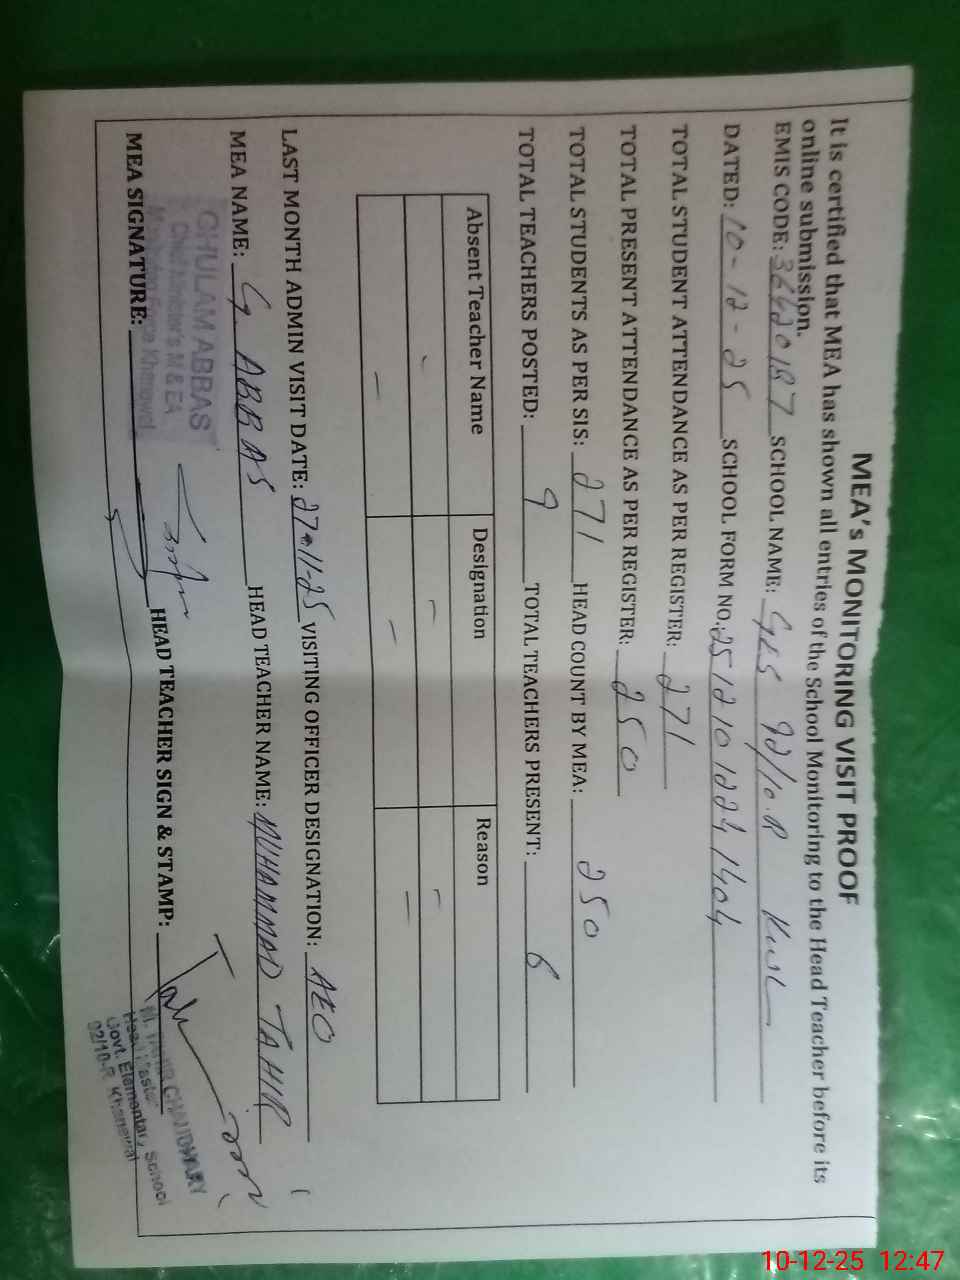 MEA's MONITORING VISIT PROOF
It is certified that MEA has shown all entries of the School Monitoring to the Head Teacher before its
online submission.
EMIS CODE: 36420187 SCHOOL NAME: 92/10.R
DATED: 10-12-25 SCHOOL FORM NO.: 2512101224 1404
TOTAL STUDENT ATTENDANCE AS PER REGISTER: 271
TOTAL PRESENT ATTENDANCE AS PER REGISTER: 250
TOTAL STUDENTS AS PER SIS: 271 HEAD COUNT BY MEA: 250
TOTAL TEACHERS POSTED: 9 TOTAL TEACHERS PRESENT:
Absent Teacher Name Designation Reason
- - -
- - -
LAST MONTH ADMIN VISIT DATE: 27-11-25 VISITING OFFICER DESIGNATION: AEO
MEA NAME: G. ABBAS HEAD TEACHER NAME: MUHAMMAD TAHIR
GHULAM ABBAS
Chief Minister's M & EA
Monitoring Force Khanewal
MEA SIGNATURE: HEAD TEACHER SIGN & STAMP:
M. TAHIR CHAUDHARY
Head Master
Govt. Elementary School
92/10-R, Khanewal
10-12-25 12:47